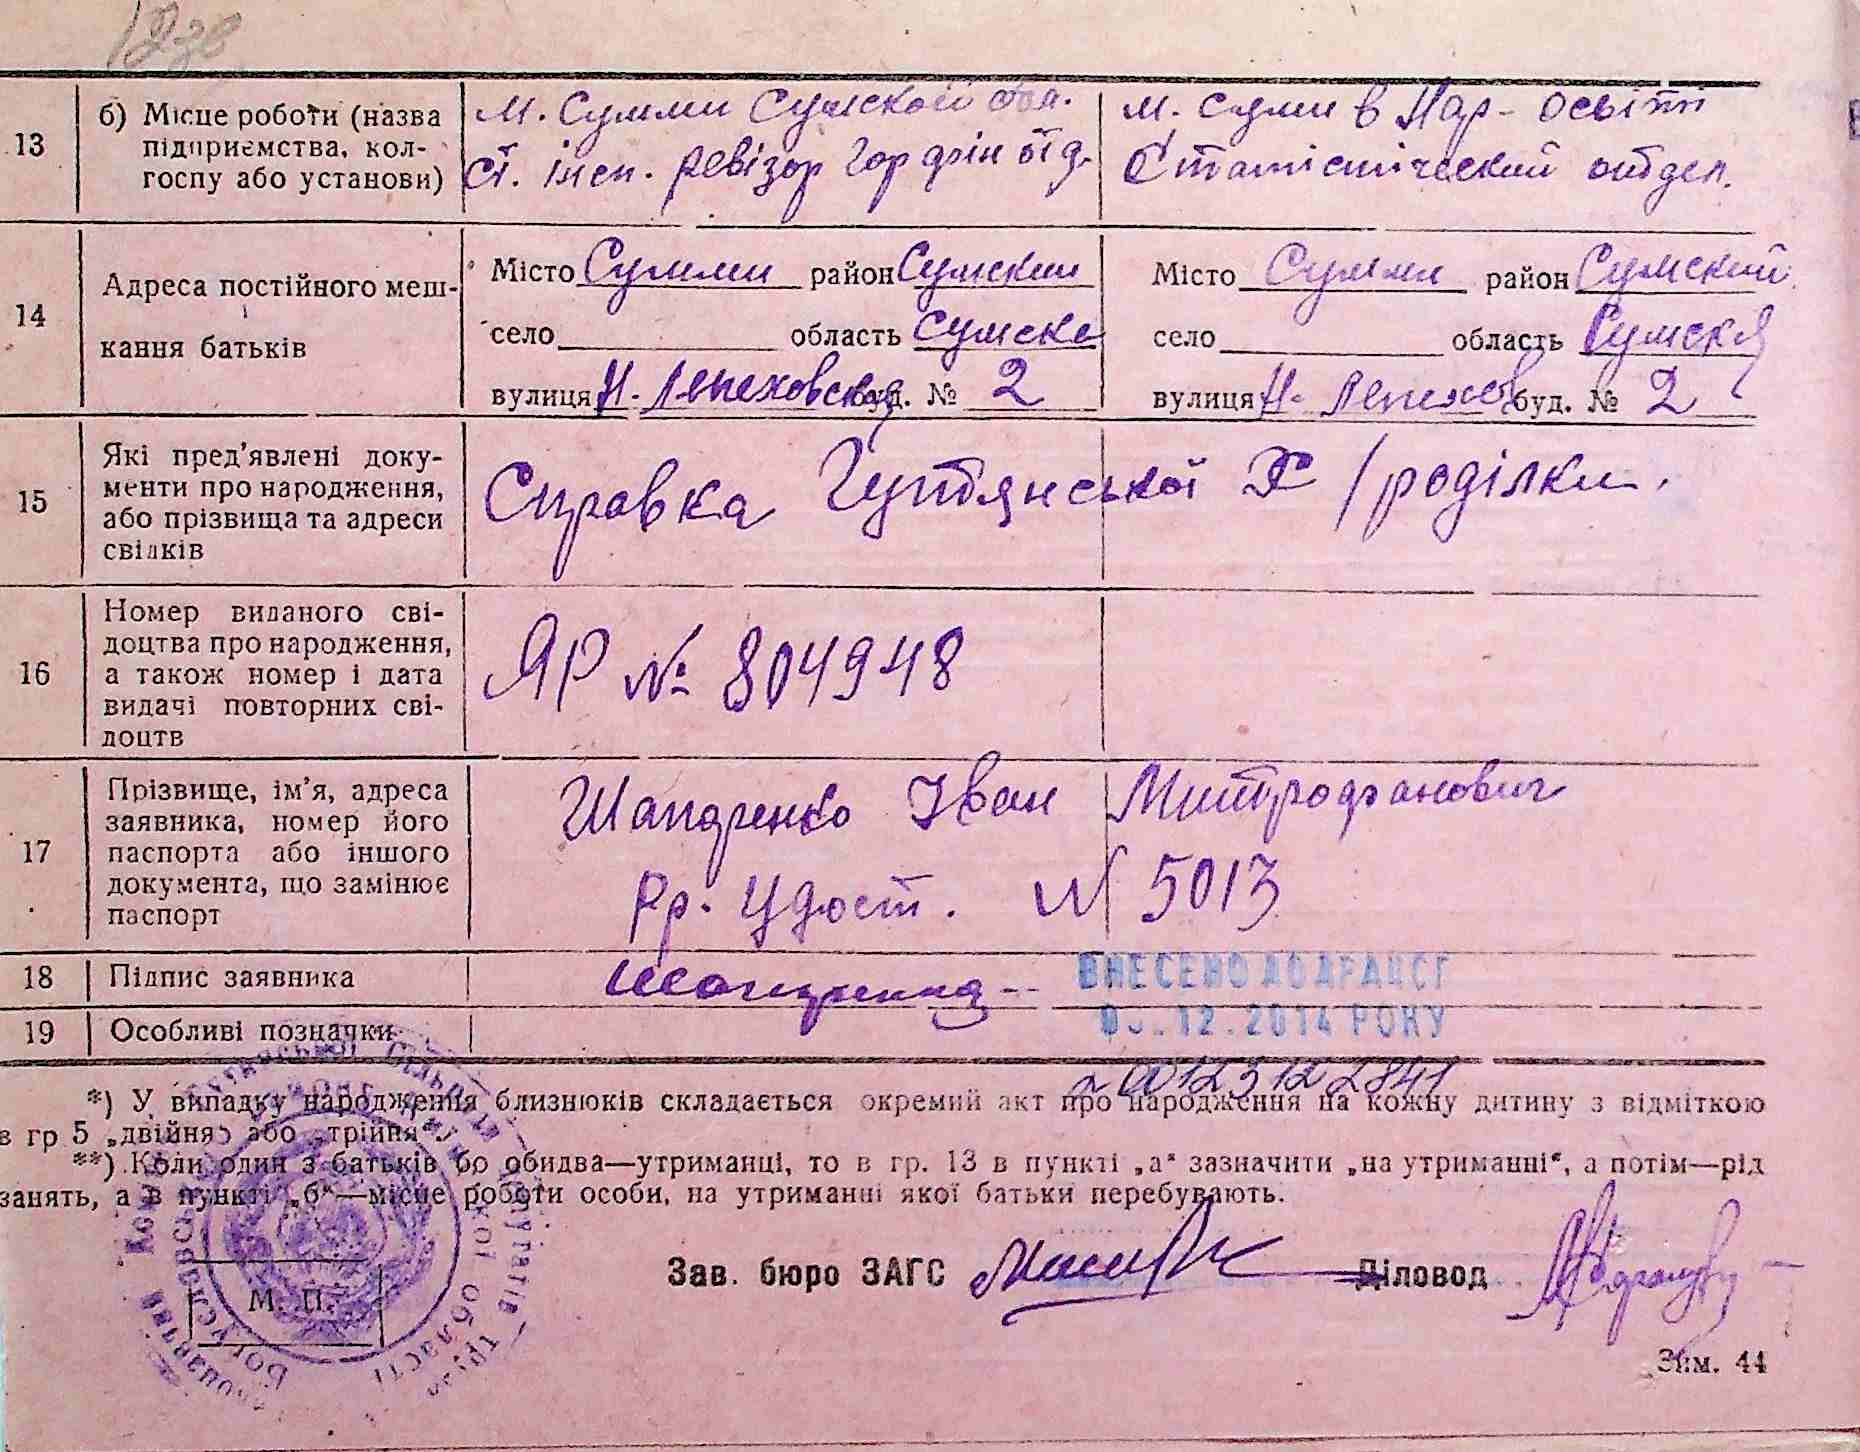 13
б) Місце роботи (назва
підприємства, кол-
госпу або установи)
М. Сумми Сумской обл.
Ст. інсп. ревізор Гор фін від.
м. Суми в Нар- освіти
Статістіческий отдел.
14
Адреса постійного меш-
кання батьків
Місто Сумми район Сумский
село область Сумска
вулиця Н. Лепеховская буд. № 2
Місто Сумми район Сумский
село область Сумская
вулиця Н. Лепехов буд. № 2
15
Які пред’явлені доку-
менти про народження,
або прізвища та адреси
свідків
Справка Гутянської Х/роділки.
16
Номер виданого сві-
доцтва про народження,
а також номер і дата
видачі повторних сві-
доцтв
ЯР № 804948
17
Прізвище, ім’я, адреса
заявника, номер його
паспорта або іншого
документа, що замінює
паспорт
Шапаренко Іван Митрофанович
Удост. N 5013
18
Підпис заявника
ВНЕСЕНО ДО ДРАЦСГ
12.2014 РОКУ
19
Особливі позначки
00123122841
*) У випадку народження близнюків складається окремий акт про народження на кожну дитину з відміткою
в гр 5 „двійня“ або „трійня“.
**) Коли один з батьків бо обидва—утриманці, то в гр. 13 в пункті „а“ зазначити „на утриманні“, а потім—рід
занять, а в пункті „б“—місце роботи особи, на утриманні якої батьки перебувають.
Зав. бюро ЗАГС
Діловод
М. П.
області
Зам. 44